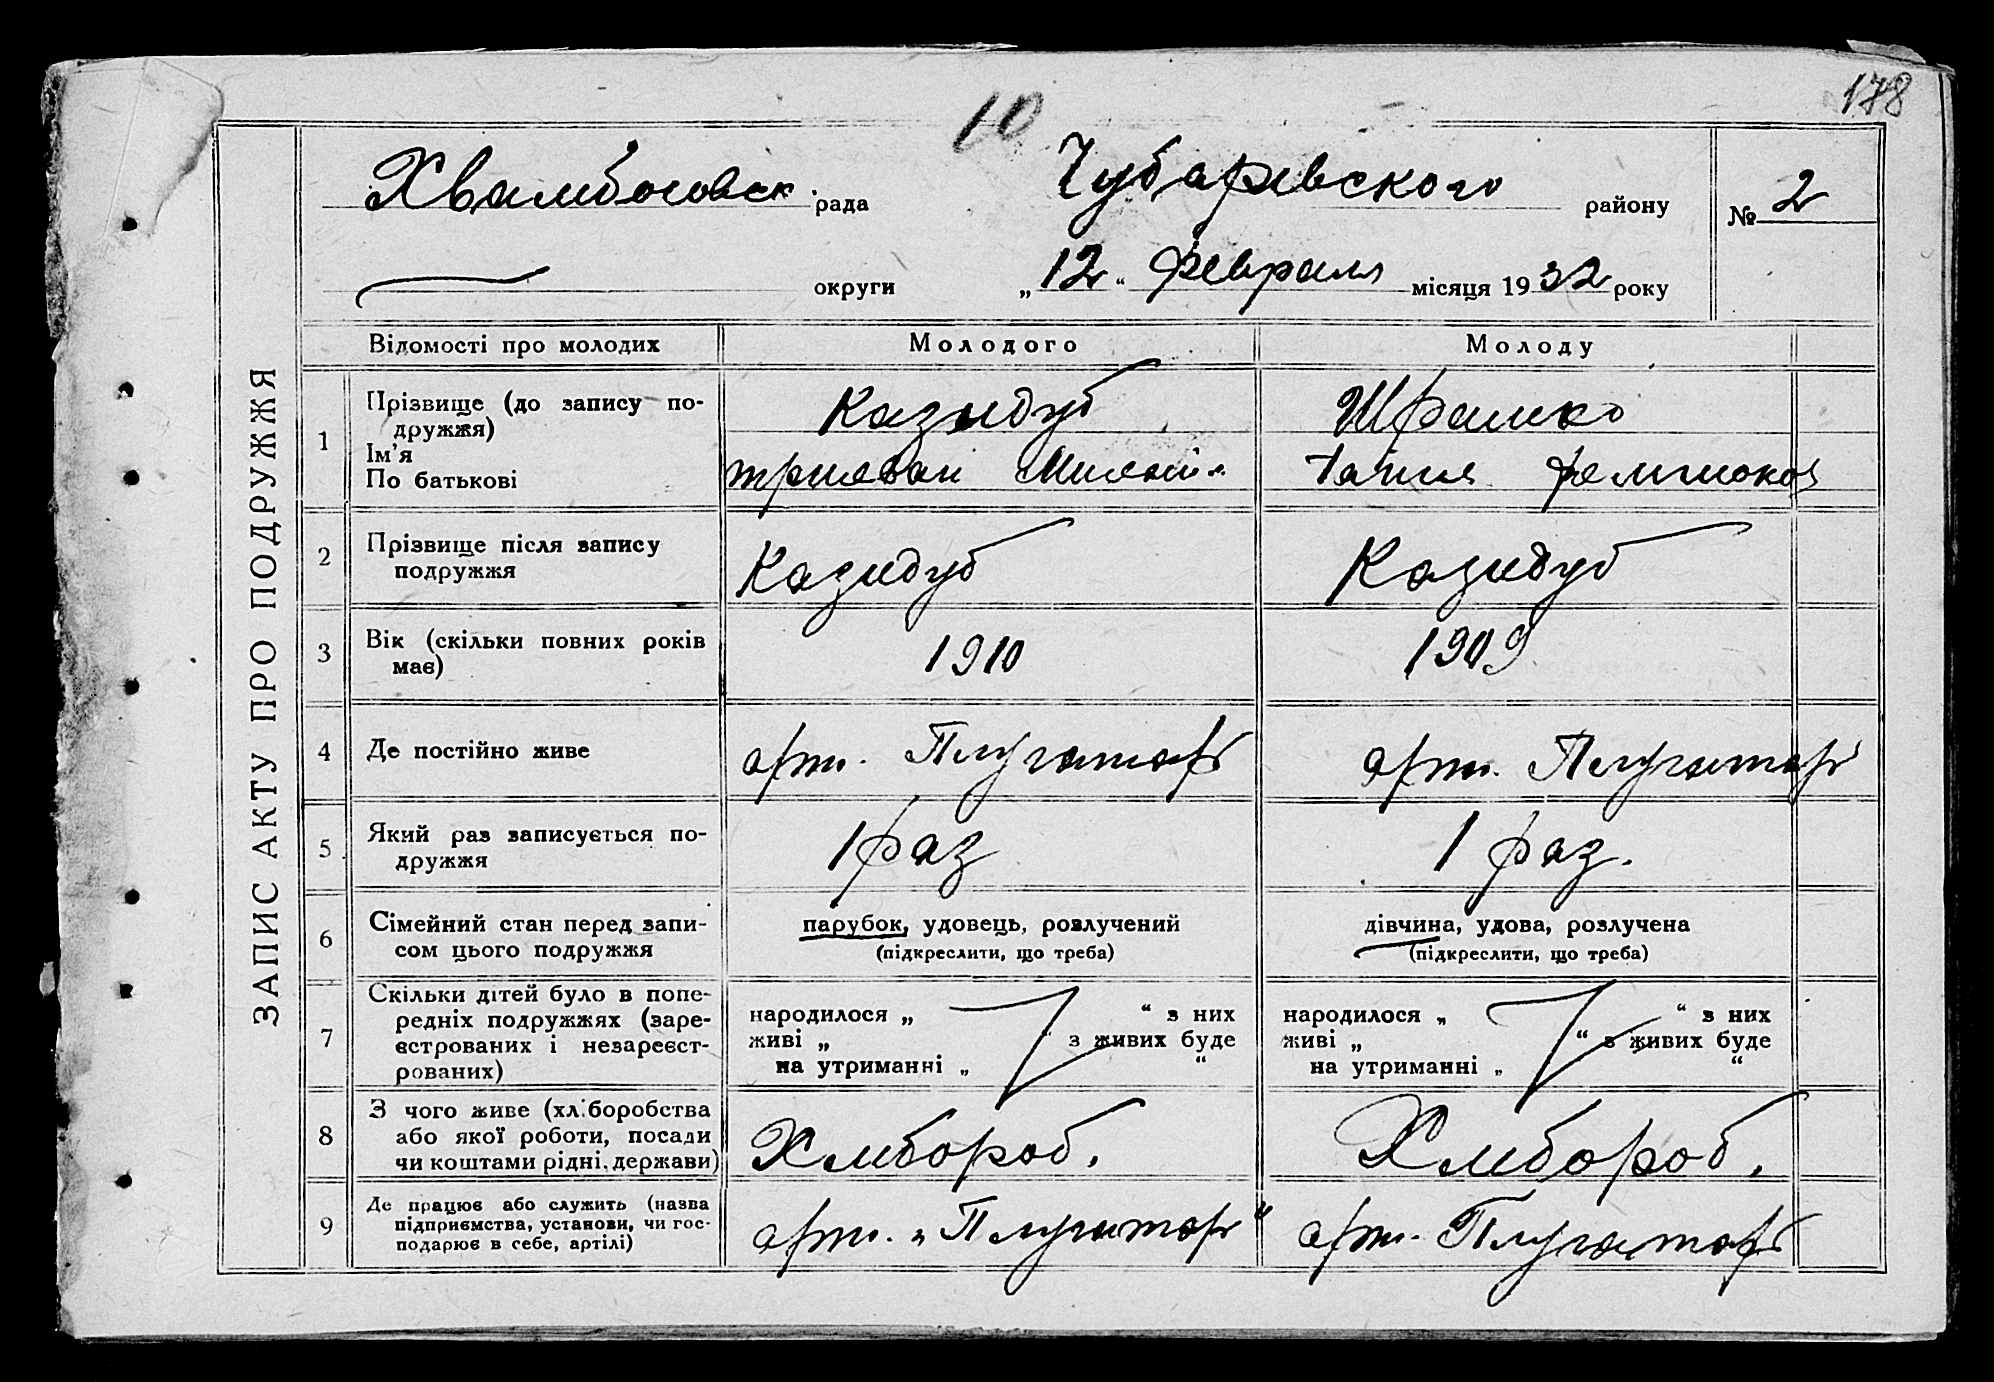 178
10
Хвалибоговск. рада Чубаревского району № 2
округи „12“ Февраля місяця 1932 року
ЗАПИС АКТУ ПРО ПОДРУЖЖЯ
Відомості про молодих Молодого Молоду
1 Прізвище (до запису по-
дружжя) Казидуб Шрамко
Ім'я
По батькові
2 Прізвище після запису
подружжя Казидуб Казидуб
3 Вік (скільки повних років
має) 1910 1909
4 Де постійно живе арт. Плугатарь арт. Плугатарь
5 Який раз записується по-
дружжя 1 раз 1 раз.
6 Сімейний стан перед запи-
сом цього подружжя
парубок, удовець, розлучений
(підкреслити, що треба)
дівчина, удова, розлучена
(підкреслити, що треба)
7 Скільки дітей було в попе-
редніх подружжях (заре-
єстрованих і незареєст-
рованих)
народилося „ “ з них
живі „ “ з живих буде
на утриманні „ “
народилося „ “ з них
живі „ “ з живих буде
на утриманні „ “
8 З чого живе (хліборобства
або якої роботи, посади
чи коштами рідні, держави)
Хлибороб. Хлибороб.
9 Де працює або служить (назва
підприємства, установи, чи гос-
подарює в себе, артілі)
арт. „Плугатарь“ арт. Плугатарь